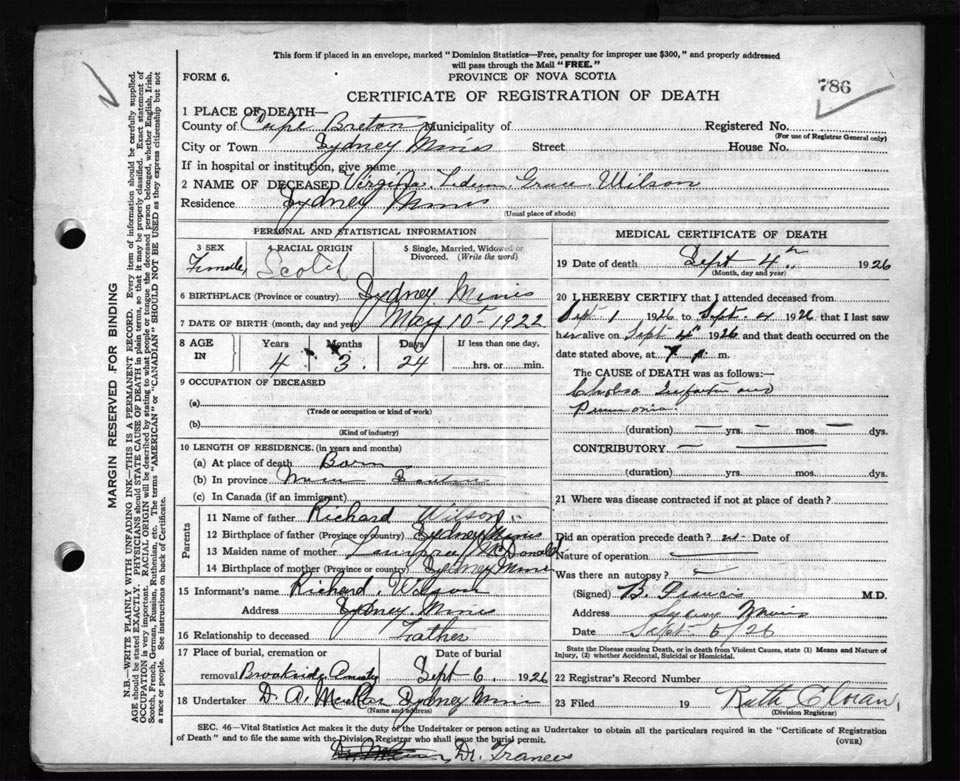 This form if placed in an envelope, marked "Dominion Statistics—Free, penalty for improper use $300," and properly addressed
will pass through the Mail "FREE."
FORM 6.
PROVINCE OF NOVA SCOTIA
786
CERTIFICATE OF REGISTRATION OF DEATH
1 PLACE OF DEATH—
County of Cape Breton Municipality of Registered No.
(For use of Registrar General only)
City or Town Sydney Mines Street House No.
If in hospital or institution, give name
2 NAME OF DECEASED Virginia Grace Wilson
Residence Sydney Mines
(Usual place of abode)
PERSONAL AND STATISTICAL INFORMATION
3 SEX 4 RACIAL ORIGIN 5 Single, Married, Widowed or
Divorced. (Write the word)
Female Scotch
6 BIRTHPLACE (Province or country) Sydney Mines
7 DATE OF BIRTH (month, day and year) May 10th 1922
8 AGE IN Years Months Days If less than one day,
4 3 24 hrs. or min.
9 OCCUPATION OF DECEASED
(a)
(Trade or occupation or kind of work)
(b)
(Kind of industry)
10 LENGTH OF RESIDENCE. (in years and months)
(a) At place of death Born
(b) In province Nova Scotia
(c) In Canada (if an immigrant)
Parents
11 Name of father Richard Wilson
12 Birthplace of father (Province or country) Sydney Mines
13 Maiden name of mother McDonald
14 Birthplace of mother (Province or country) Sydney Mines
15 Informant's name Richard Wilson
Address Sydney Mines
16 Relationship to deceased Father
17 Place of burial, cremation or Date of burial
removal Brookside Sept 6. 1926
18 Undertaker D. A. Sydney Mines
(Name and address)
MEDICAL CERTIFICATE OF DEATH
19 Date of death Sept 4th 1926
(Month, day and year)
20 I HEREBY CERTIFY that I attended deceased from
Sept 1 1926 to Sept. 4 1926 that I last saw
her alive on Sept 4th 1926 and that death occurred on the
date stated above, at m.
The CAUSE of DEATH was as follows:—
Cholera Infantum and
Pneumonia.
(duration) — yrs. — mos. — dys.
CONTRIBUTORY — —
(duration) yrs. mos. dys.
21 Where was disease contracted if not at place of death?
Did an operation precede death? no Date of
Nature of operation —
Was there an autopsy? —
(Signed) B. Francis M.D.
Address Sydney Mines
Date Sept 5/26
State the Disease causing Death, or in death from Violent Causes, state (1) Means and Nature of
Injury, (2) whether Accidental, Suicidal or Homicidal.
22 Registrar's Record Number
23 Filed 19 Ruth Cloran,
(Division Registrar)
SEC. 46—Vital Statistics Act makes it the duty of the Undertaker or person acting as Undertaker to obtain all the particulars required in the "Certificate of Registration
of Death" and to file the same with the Division Registrar who shall issue the burial permit.
(OVER)
Dr. Francis
MARGIN RESERVED FOR BINDING
N.B.—WRITE PLAINLY WITH UNFADING INK—THIS IS A PERMANENT RECORD. Every item of information should be carefully supplied.
AGE should be stated EXACTLY. PHYSICIANS should STATE CAUSE OF DEATH in plain terms, so that it may be properly classified. Exact statement of
OCCUPATION is very important. RACIAL ORIGIN will be described by stating to what people or tongue the deceased person belonged, whether English, Irish,
Scotch, French, German, Russian, Ruthenian, etc. The terms "AMERICAN" or "CANADIAN" SHOULD NOT BE USED as they express citizenship but not
a race or people. See instructions on back of Certificate.